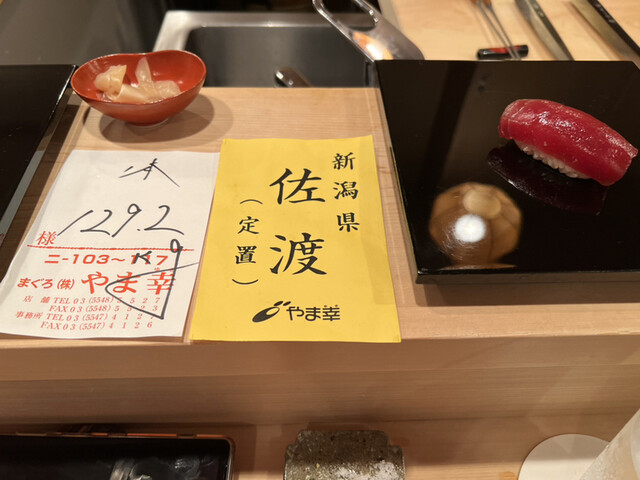 129.2
様
Kg
ニ-103~117
まぐろ(株)やま幸
店舗 TEL 03 (3548) 5527
FAX 03 (3548) 5523
事務所 TEL 03 (5547) 4127
FAX 03 (5547) 4126
新潟県
佐渡
(定置)
やま幸